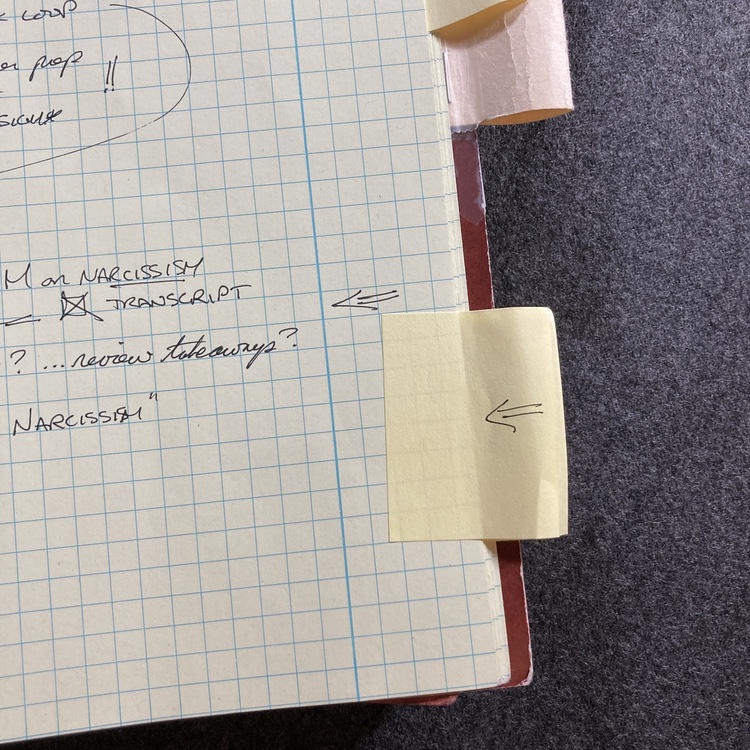 LOOP
prep !!
M on NARCISSISM
TRANSCRIPT
? ...review takeaways?
NARCISSISM"